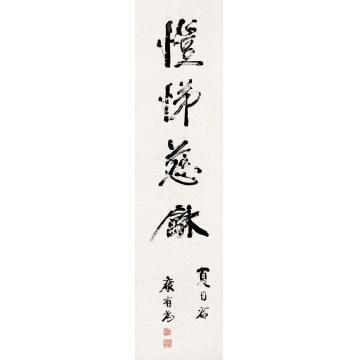 愷悌慈龢
夏日
康有為